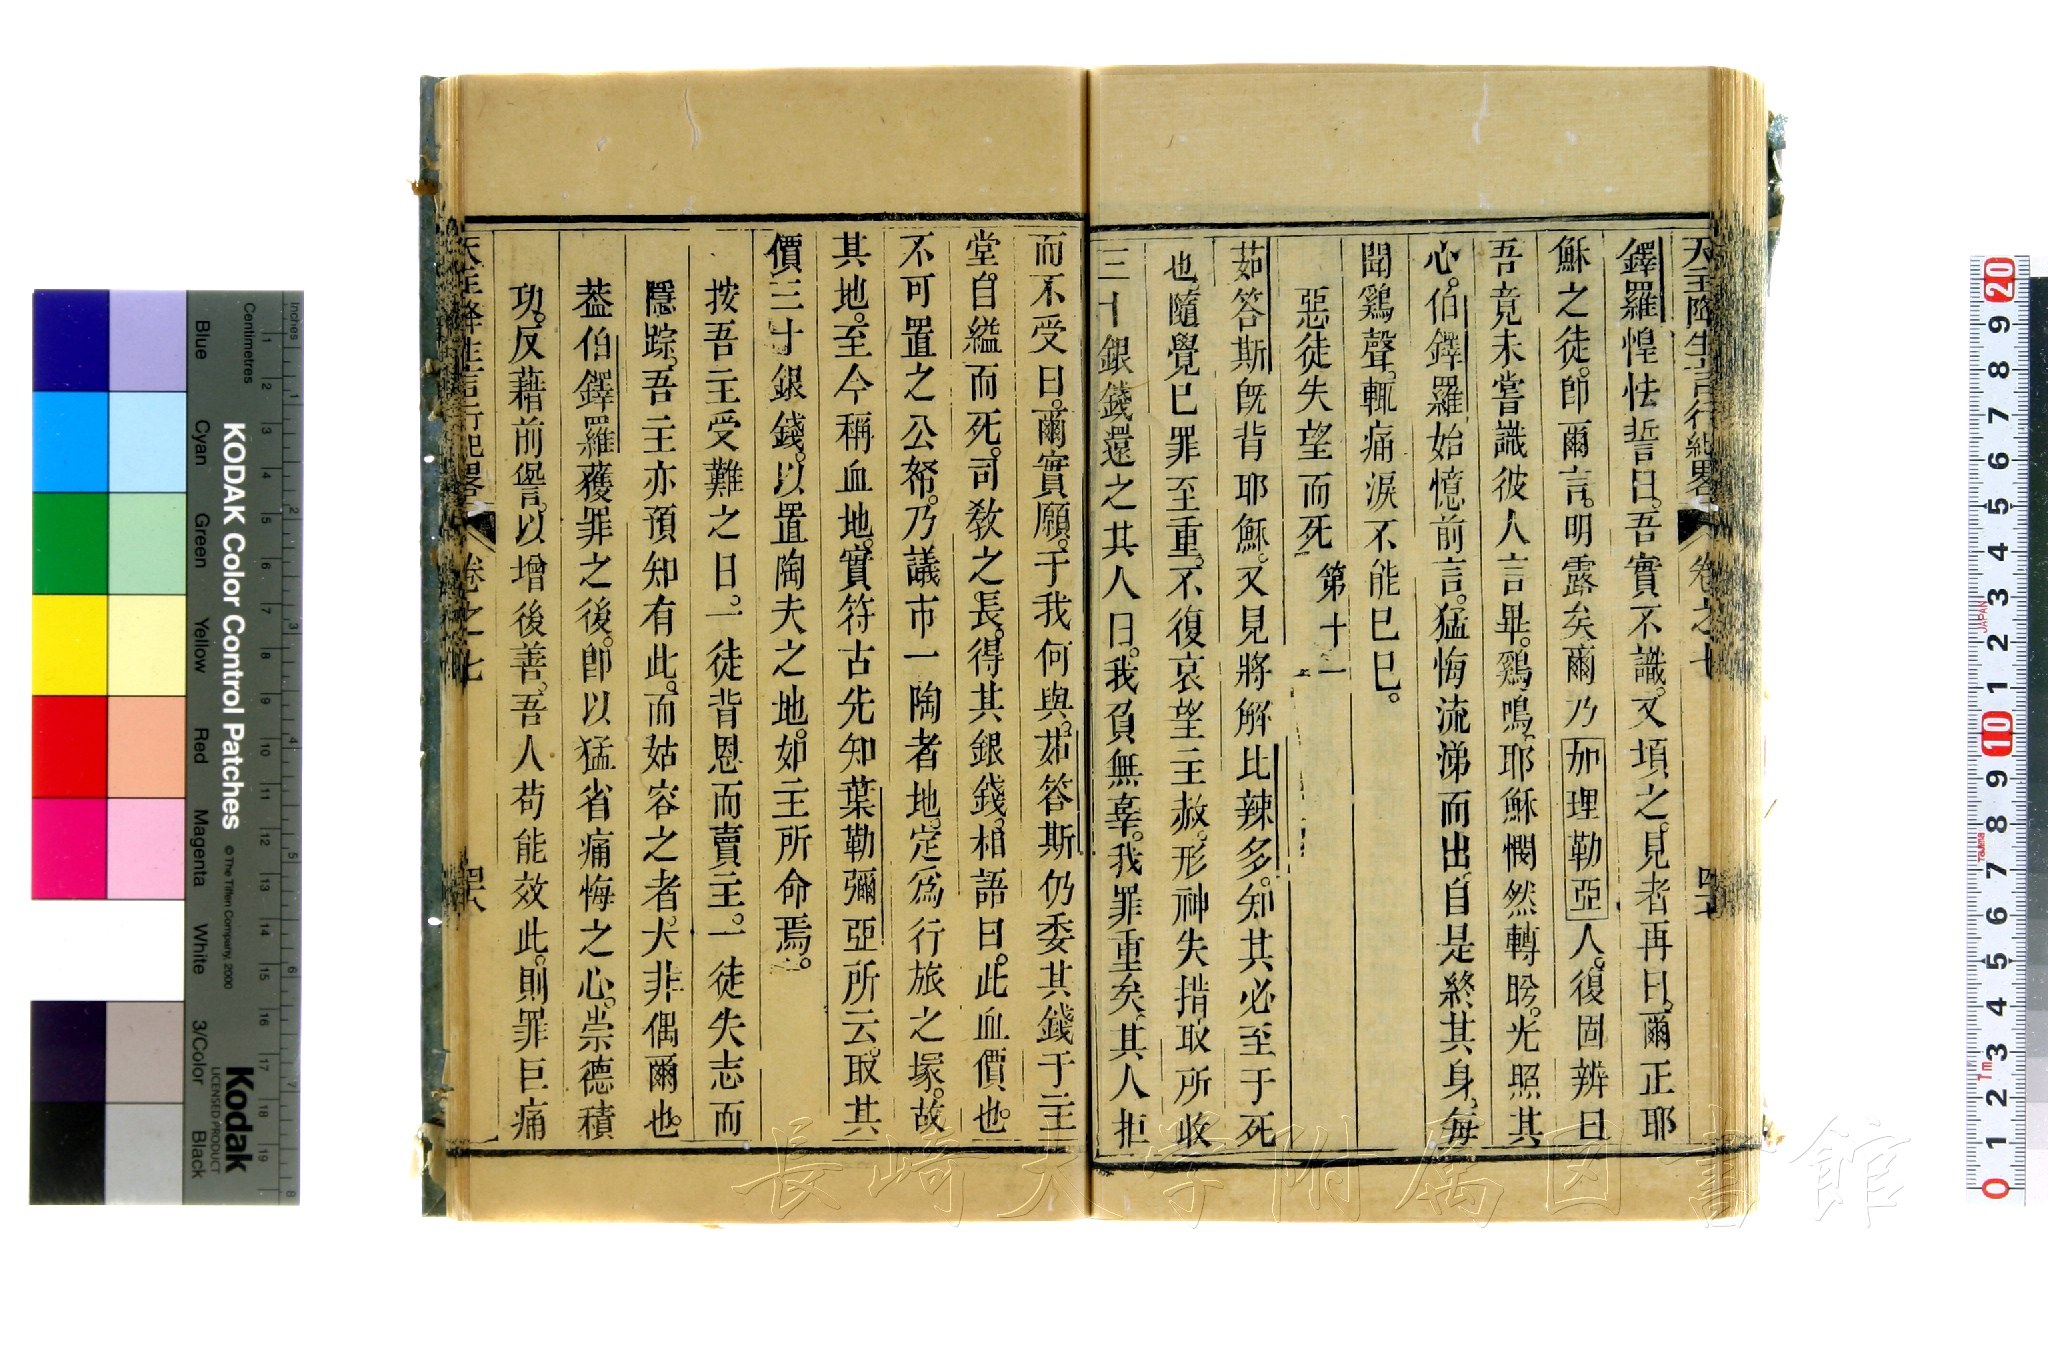 天主降生言行紀畧 卷之七
鐸羅惶怯誓曰。吾實不識。又頃之。見者再曰。爾正耶
穌之徒。卽爾言。明露矣爾乃加理勒亞人。復固辨曰
吾竟未嘗識彼人言畢。鷄鳴。耶穌憫然轉眄。光照其
心。伯鐸羅始憶前言。猛悔流涕而出。自是終其身。每
聞鷄聲。輒痛淚不能已已。
惡徒失望而死 第十一
茹答斯旣背耶穌。又見將解比辣多。知其必至于死
也。隨覺已罪至重。不復哀望主赦。形神失措取所收
三十銀錢還之其人曰。我負無辜。我罪重矣。其人拒
而不受曰。爾實願。于我何與。茹答斯仍委其錢于主
堂。自縊而死。司敎之長。得其銀錢。相語曰。此血價也。
不可置之公帑。乃議市一陶者地。定爲行旅之塚。故
其地。至今稱血地。實符古先知葉勒彌亞所云。取其
價三十銀錢。以置陶夫之地。如主所命焉。
按吾主受難之日。一徒背恩而賣主。一徒失志而
隱踪。吾主亦預知有此。而姑容之者。夫非偶爾也。
葢伯鐸羅獲罪之後。卽以猛省痛悔之心。崇德積
功。反藉前愆。以增後善。吾人苟能效此。則罪巨痛
天主降生言行紀畧 卷之七 四十八
KODAK Color Control Patches © The Tiffen Company, 2000
Kodak
LICENSED PRODUCT
Inches
Centimetres
Blue Cyan Green Yellow Red Magenta White 3/Color Black
長崎大学附属図書館